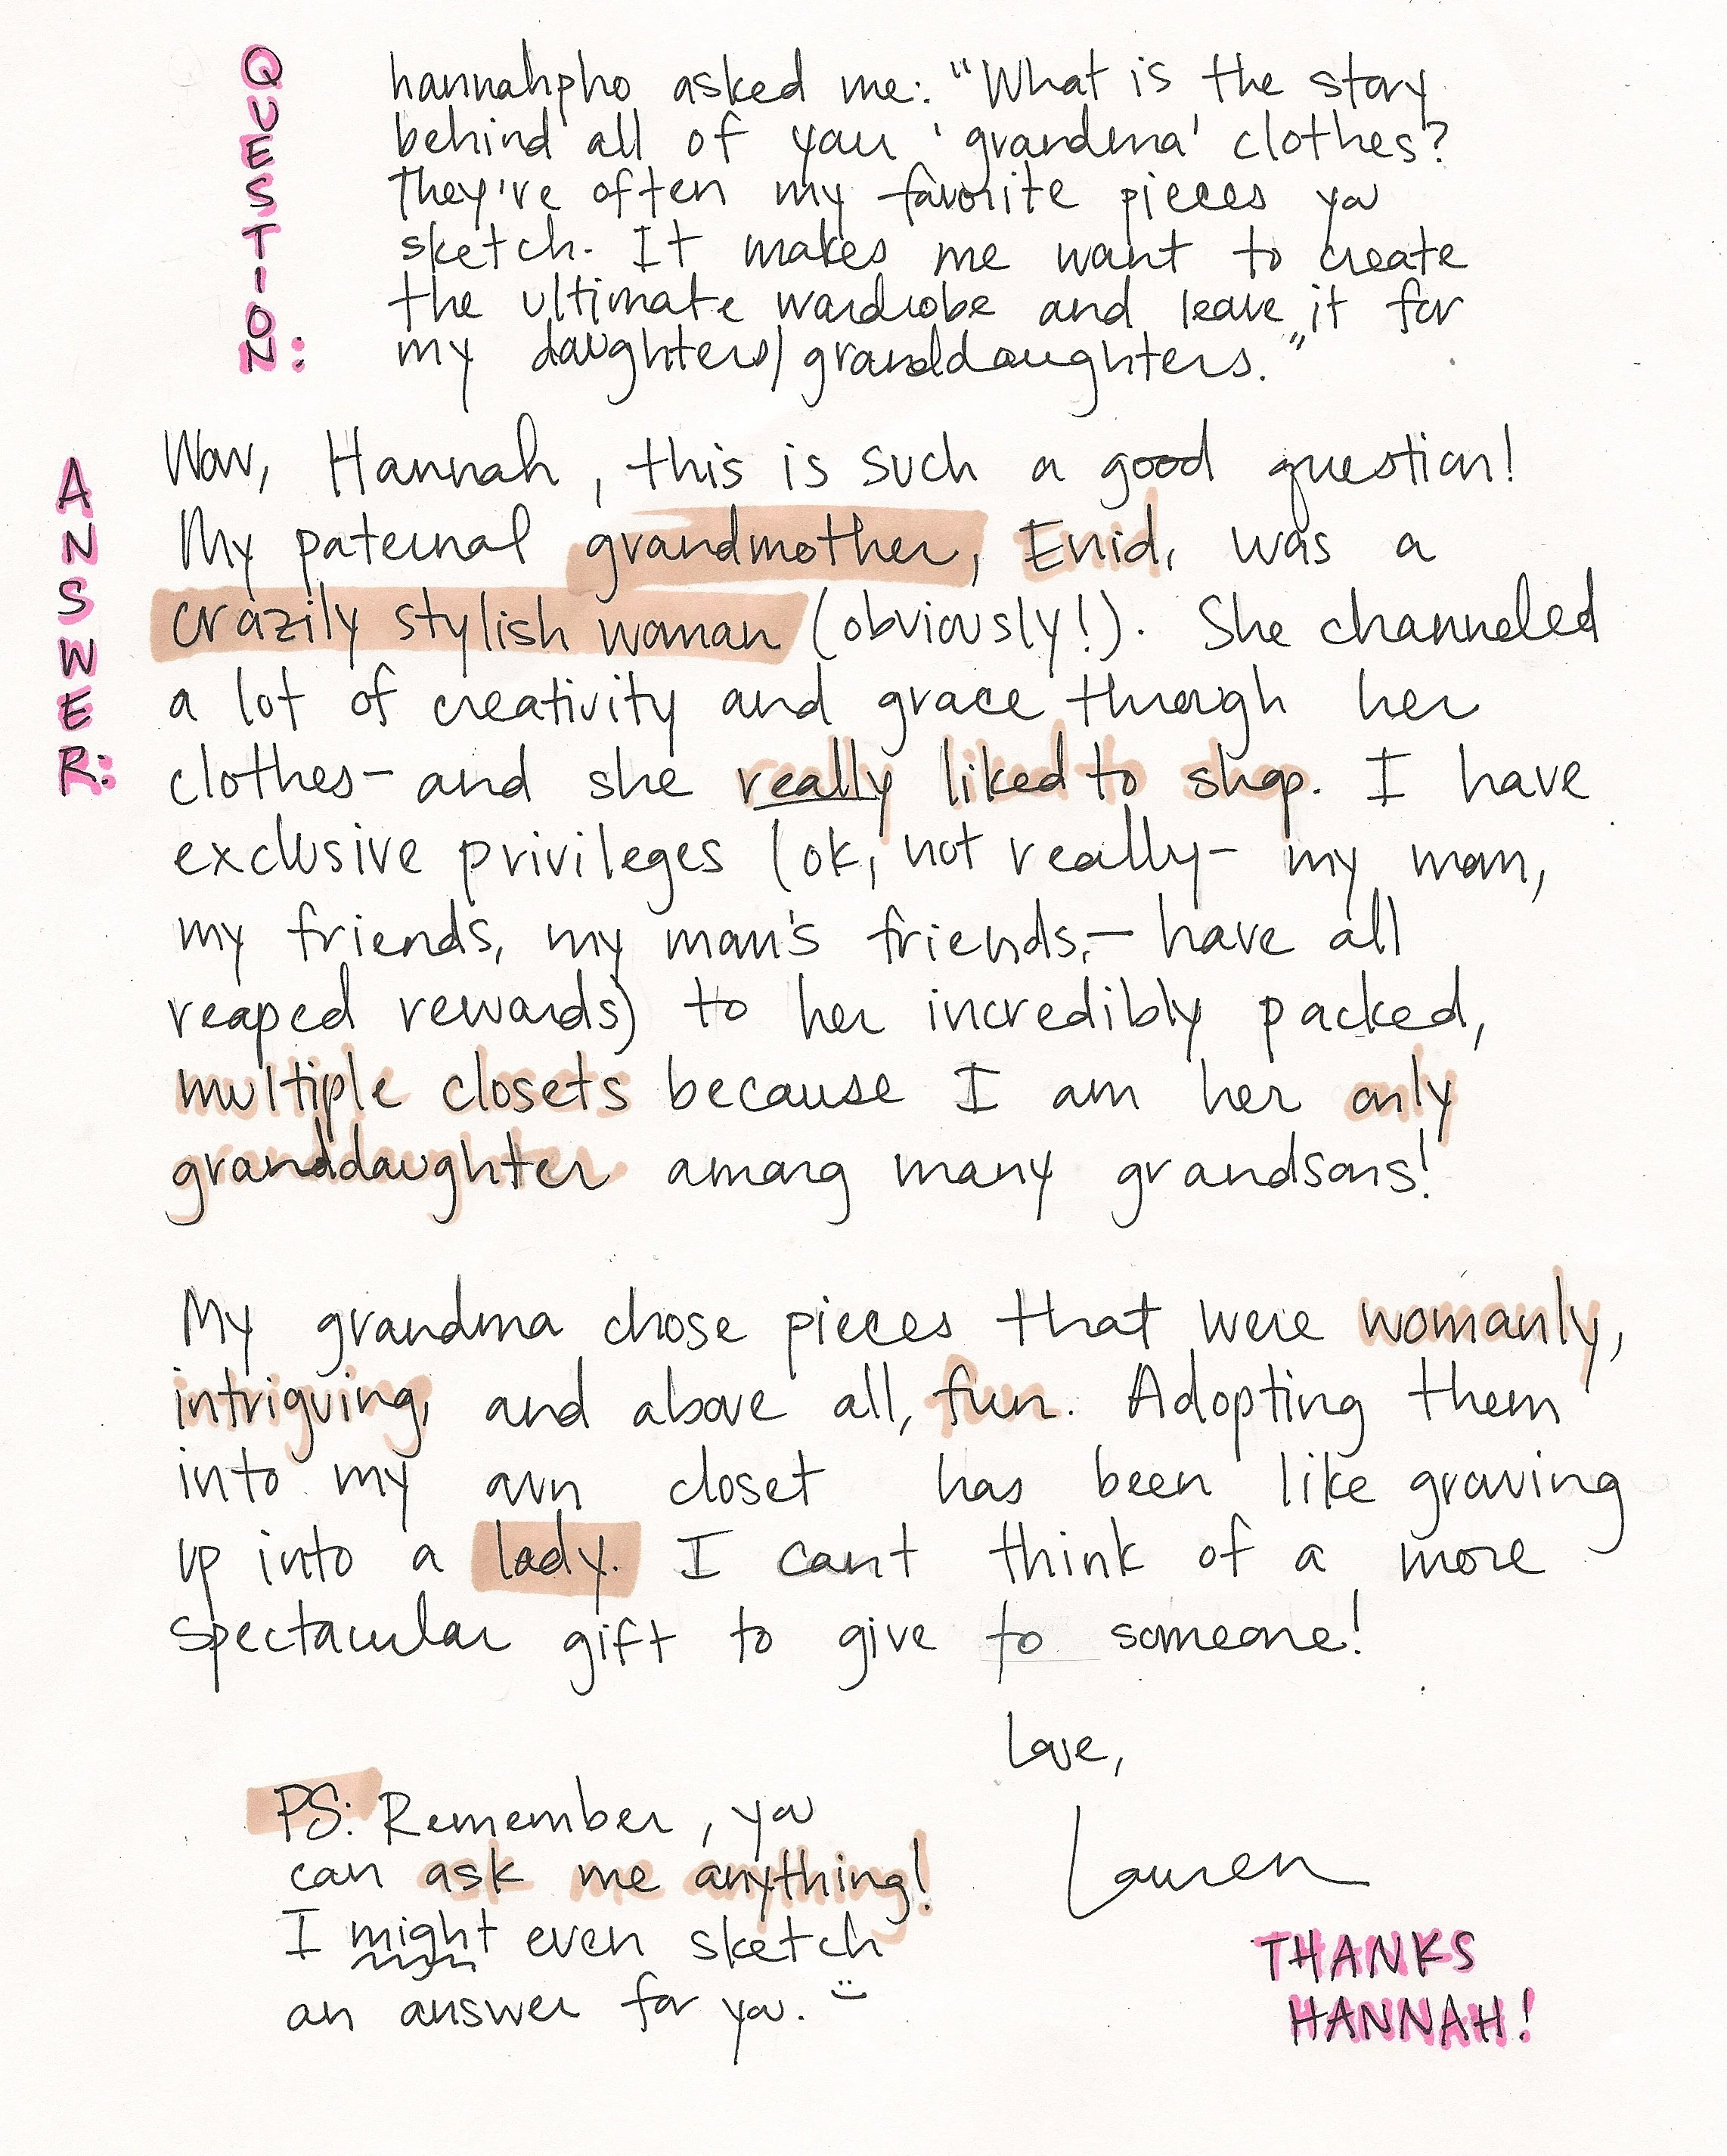 QUESTION:
hannahpho asked me: "What is the story
behind all of your 'grandma' clothes?
They're often my favorite pieces you
sketch. It makes me want to create
the ultimate wardrobe and leave it for
my daughters/granddaughters."
ANSWER:
Wow, Hannah, this is such a good question!
My paternal grandmother, Enid, was a
crazily stylish woman (obviously!). She channeled
a lot of creativity and grace through her
clothes- and she really liked to shop. I have
exclusive privileges (ok, not really- my mom,
my friends, my mom's friends,- have all
reaped rewards) to her incredibly packed,
multiple closets because I am her only
granddaughter among many grandsons!
My grandma chose pieces that were womanly,
intriguing, and above all, fun. Adopting them
into my own closet has been like growing
up into a lady. I can't think of a more
spectacular gift to give to someone!
Love,
Lauren
PS: Remember, you
can ask me anything!
I might even sketch
an answer for you. :)
THANKS
HANNAH!